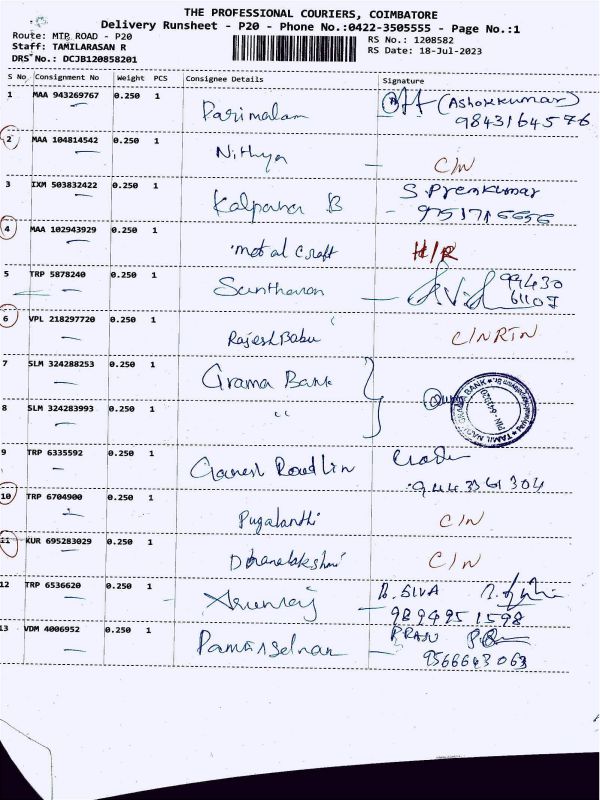 THE PROFESSIONAL COURIERS, COIMBATORE
Delivery Runsheet - P20 - Phone No.:0422-3505555 - Page No.:1
Route: MTP ROAD - P20
RS No.: 1208582
Staff: TAMILARASAN R
RS Date: 18-Jul-2023
DRS No.: DCJB120858201
S No Consignment No Weight PCS Consignee Details Signature
1 MAA 943269767 0.250 1 Parimalam (Ashokkumar)
9843164576
2 MAA 104814542 0.250 1 Nithya C/N
3 IXM 503832422 0.250 1 Kalpana B S. Premkumar
4 MAA 102943929 0.250 1 metal craft H/R
5 TRP 5878240 0.250 1 Santhanan 99430
61107
6 VPL 218297720 0.250 1 Rajesh Babu C/NRTN
7 SLM 324288253 0.250 1 Grama Bank
8 SLM 324283993 0.250 1 "
TAMIL NADU GRAMA BANK
9 TRP 6335592 0.250 1 Ganesh
9443361304
10 TRP 6704900 0.250 1 Pugalanthi C/N
11 KUR 695283029 0.250 1 Dhanalakshmi C/N
12 TRP 6536620 0.250 1 Arunraj B. SIVA
9894951598
13 VDM 4006952 0.250 1 PRABU
9566643063